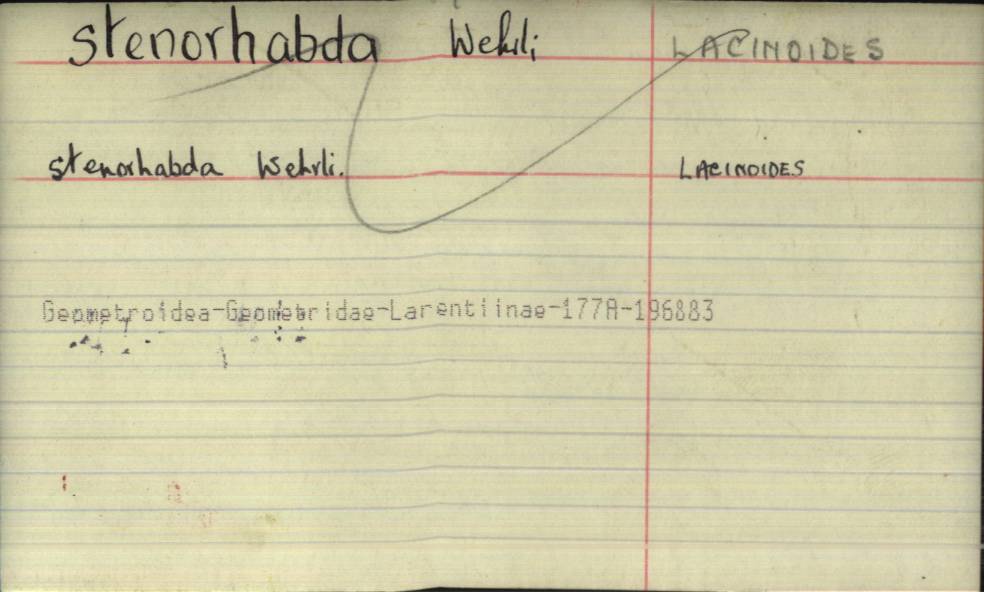 stenorhabda Wehrli LACINOIDES
stenorhabda Wehrli. LACINOIDES
Geometroidea-Geometridae-Larentiinae-177A-196883